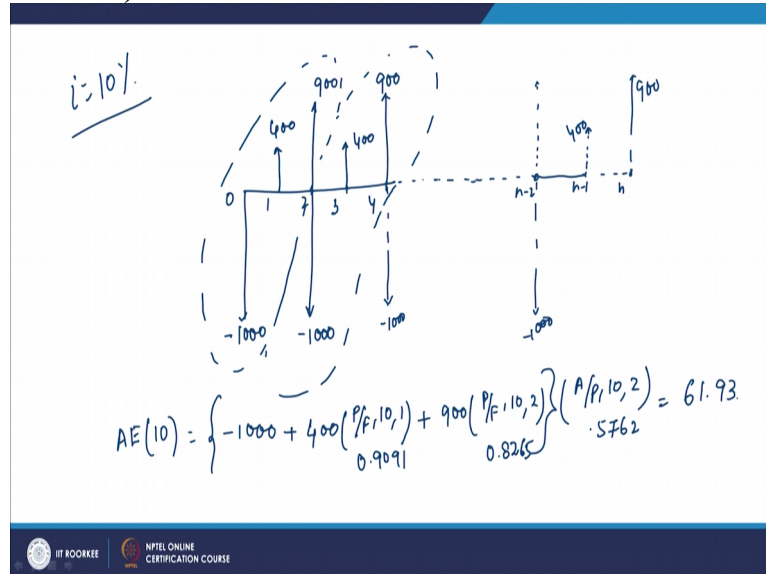 i=10%
9001 900 900
400 400 400
0 1 2 3 4 n-2 n-1 n
-1000 -1000 -1000 -1000
AE(10) = {-1000 + 400(P/F,10,1) + 900(P/F,10,2)}(A/P,10,2) = 61.93
0.9091 0.8265 .5762
IIT ROORKEE
NPTEL ONLINE
CERTIFICATION COURSE